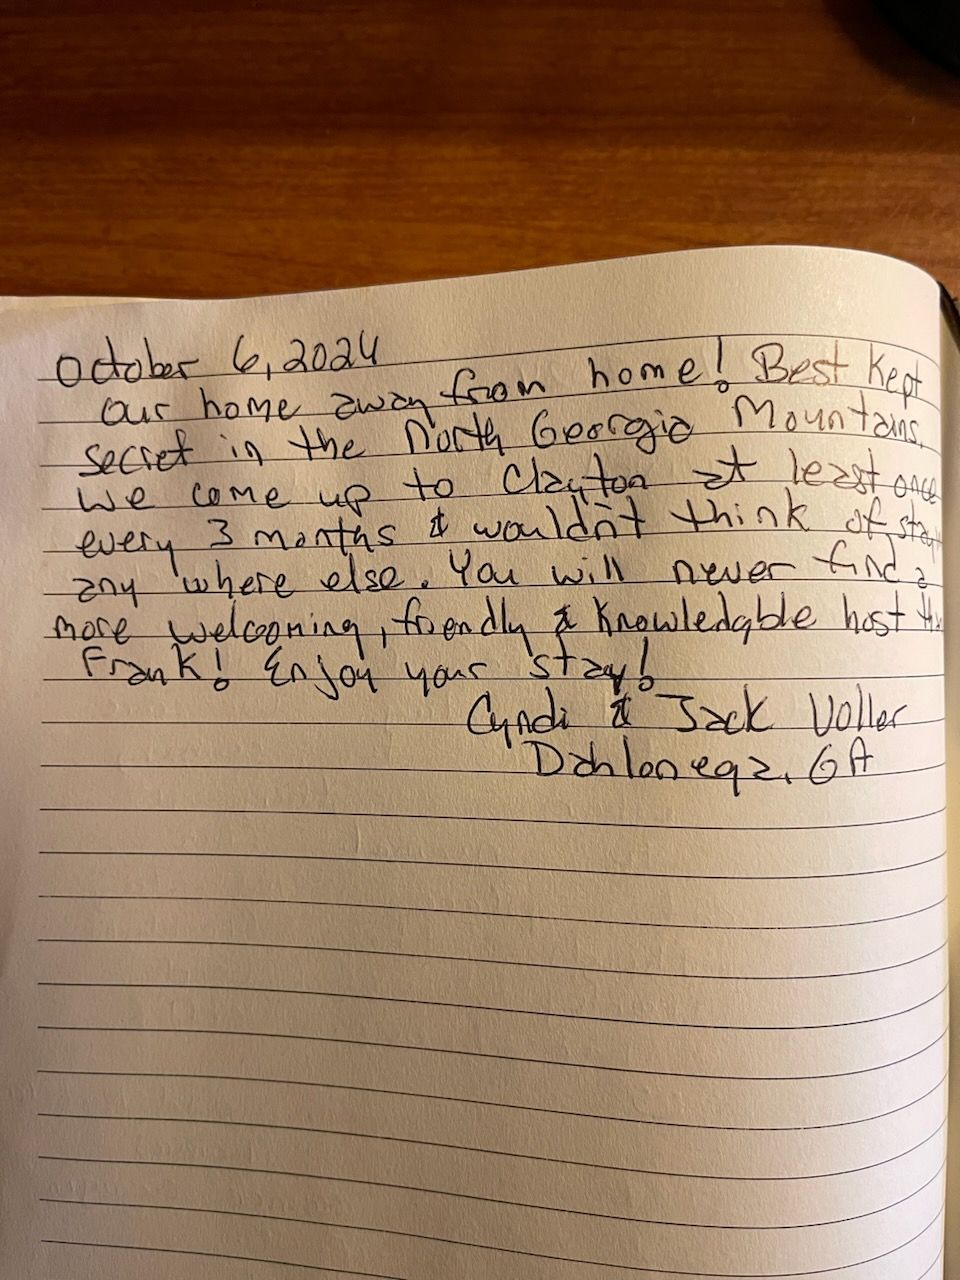 October 6, 2024
Our home away from home! Best Kept
secret in the North Georgia Mountains.
We come up to Clayton at least once
every 3 months & wouldn't think of
any where else. You will never find a
more welcoming, friendly & Knowledgable host
Frank! Enjoy your stay!
Cyndi & Jack Voller
Dahlonega, GA